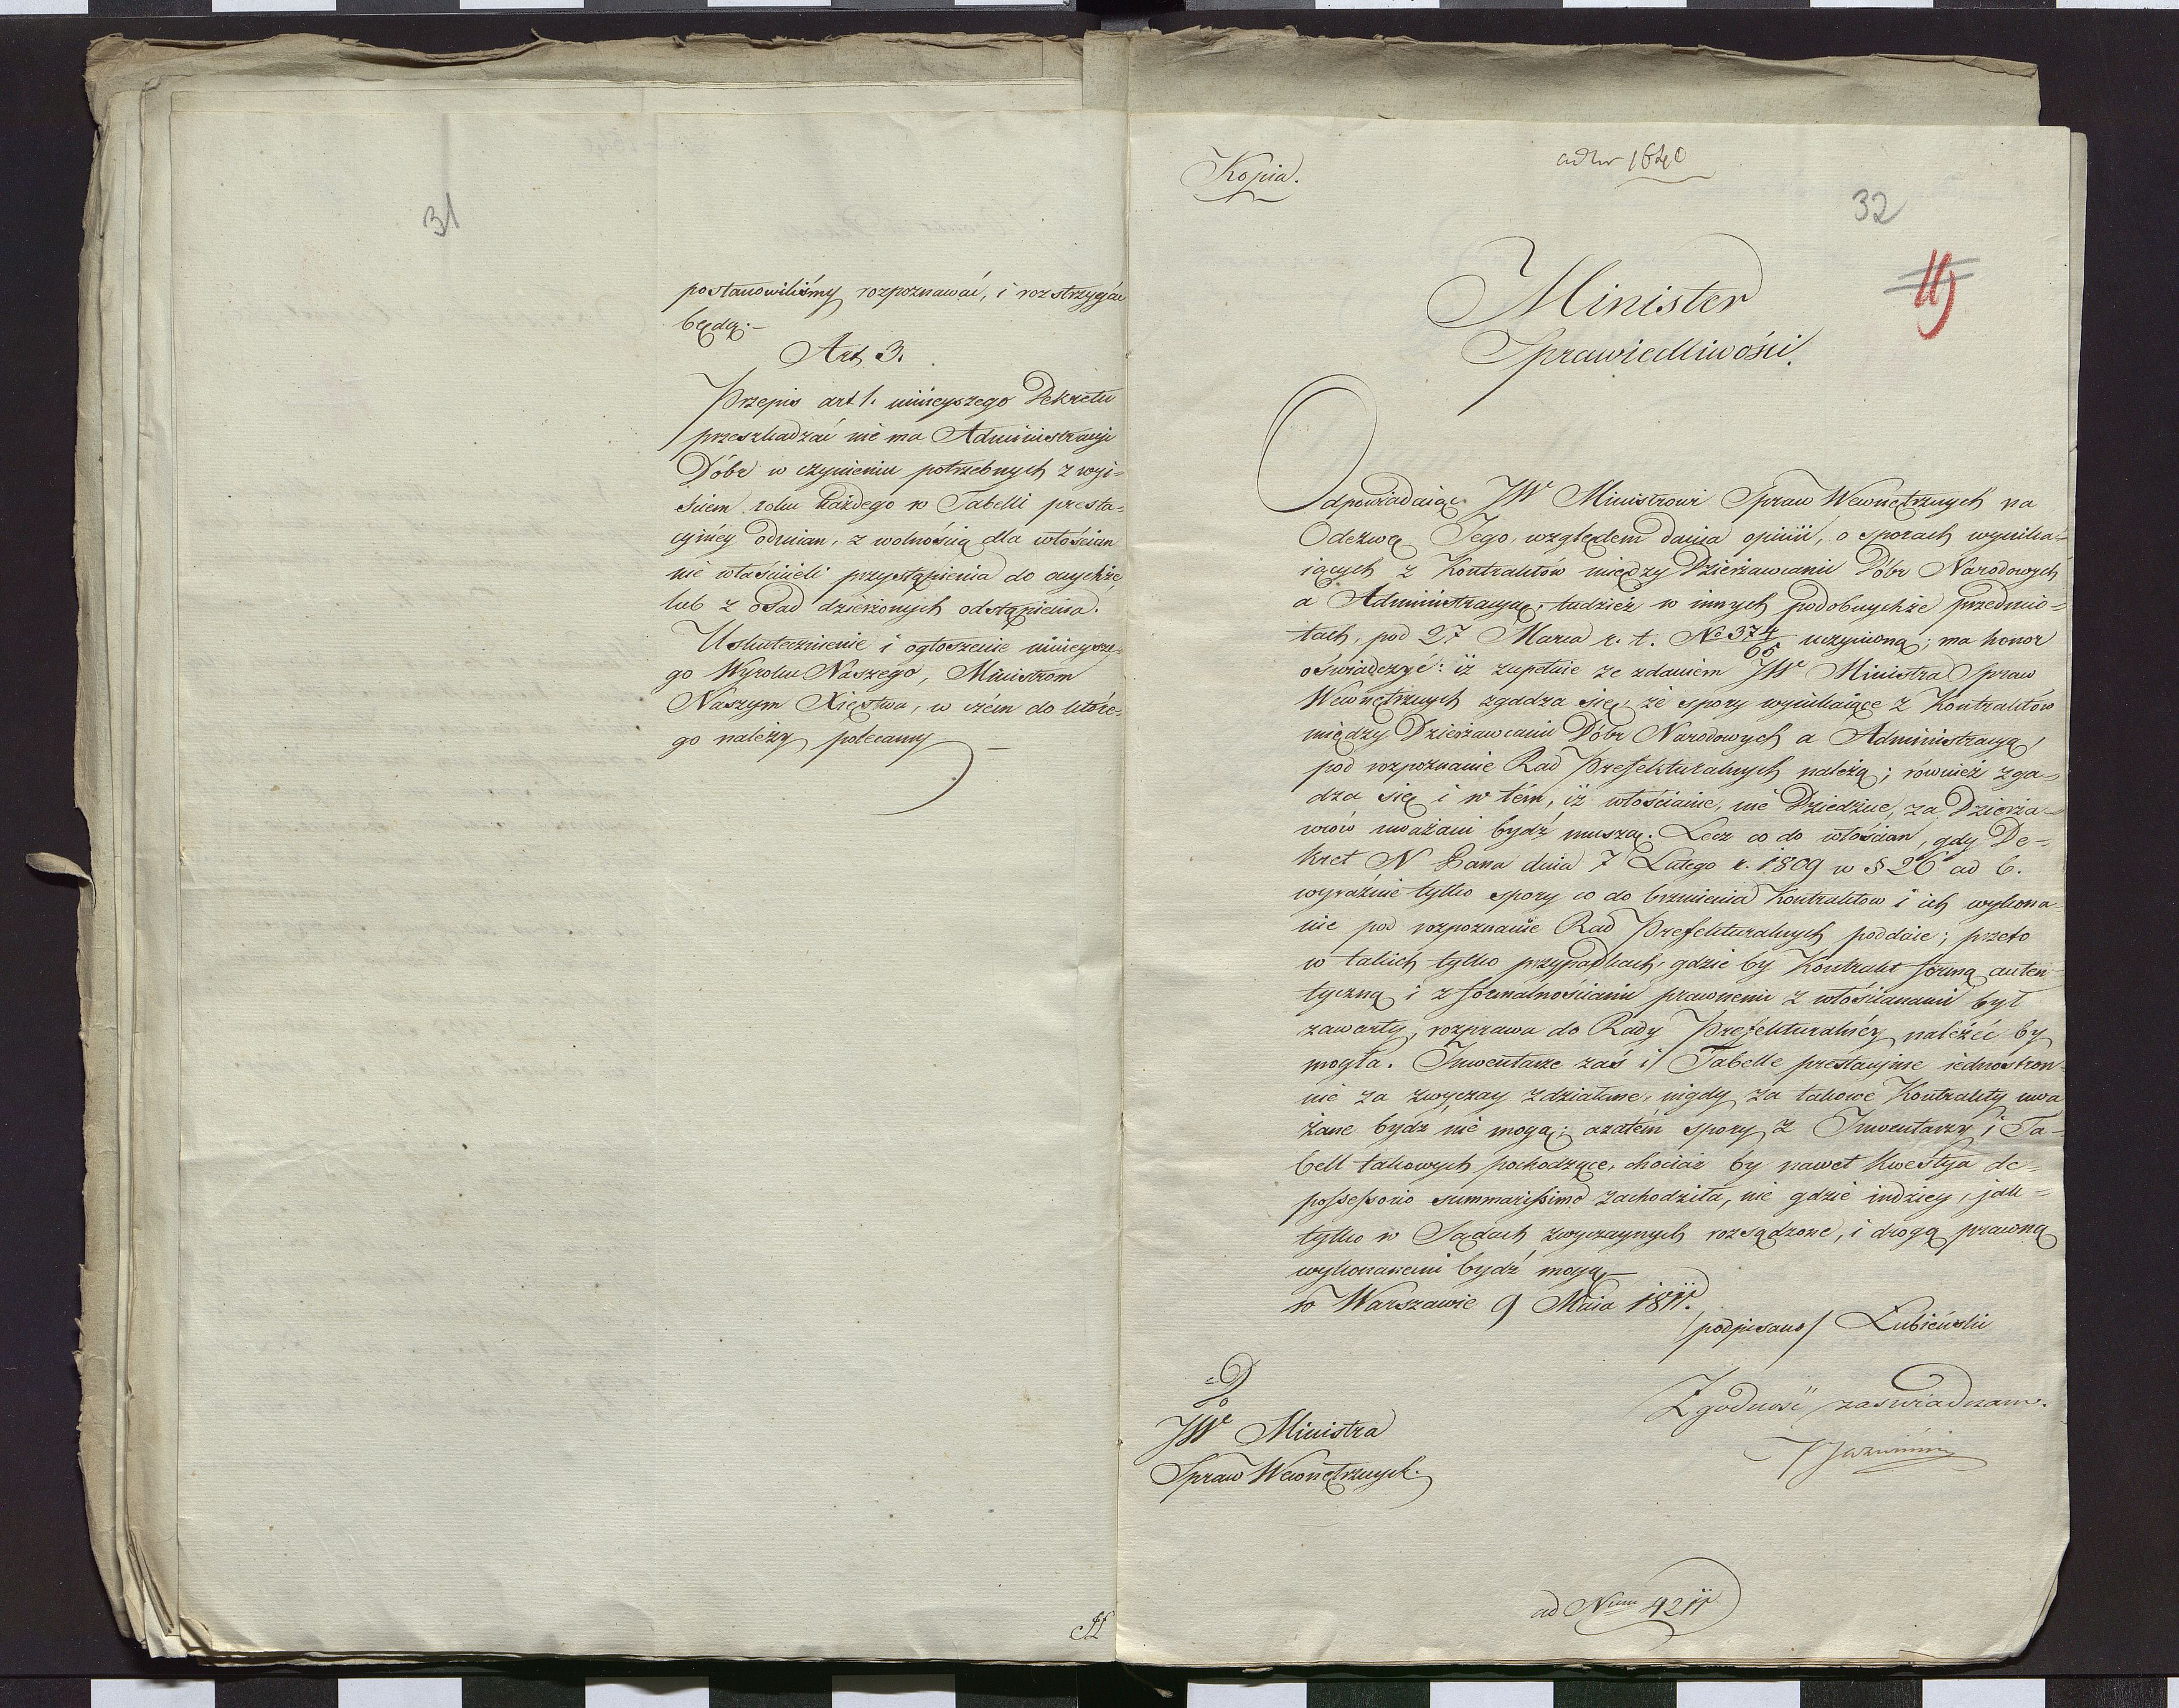 31
postanowiliśmy rozpoznawać, i rozstrzygać
będą.–
Art 3.
Przepis art 1. ninieyszego Dekretu
przeszkadzać nie ma Administracyi
Dóbr w czynieniu potrzebnych z wyi=
ściem roku każdego w Tabelli presta=
cyinéy odmian, z wolnością dla włościan
nie właścicieli przystąpienia do onychże,
lub z osad dzierżonych odstąpienia.
Uskutecznienie i ogłoszenie ninieysze=
go Wyroku Naszego, Ministrom
Naszym Xięstwa, w czém do które=
go należy polecamy –
Kopia.
ad Nr 1640
32
Minister
Sprawiedliwości.
Odpowiadaiąc JW Ministrowi Spraw Wewnętrznych na
Odezwę Jego, względem dania opinii, o sporach wynika=
iących z Kontraktów między Dzierżawcami Dóbr Narodowych
a Administracyą; tudzież w innych podobnychże przedmio=
tach, pod 27 Marca r. t. No 374/66 uczynioną; ma honor
oświadczyć: iż zupełnie ze zdaniem JWo Ministra Spraw
Wewnętrznych zgadza się, że spory wynikaiące z Kontraktów
między Dzierżawcami Dóbr Narodowych a Administracyą,
pod rozpoznanie Rad Prefekturalnych należą; również zga=
dza się i w tém, iż włościanie, nie Dziedzice, za Dzierża=
wców uważani bydź muszą. Lecz co do włościan, gdy De=
kret N Pana dnia 7 Lutego r. 1809 w § 26 ad 6.
wyraźnie tylko spory co do brzmienia Kontraktow i ich wykona=
nie pod rozpoznanie Rad Prefekturalnych poddaie; przeto
w takich tylko przypadkach, gdzie by Kontrakt formą auten=
tyczną i z formalnościami prawnemi z włościanami był
zawarty, rozprawa do Rady Prefekturalnéy należéć by
mogła. Inwentarze zaś i Tabelle prestacyine iednostron=
nie za zwyczay zdziałane, nigdy za takowe Kontrakty uwa
żane bydź nie mogą; azatém spory z Inwentarzy i Ta=
bell takowych pochodzące, chociaż by nawet kwestya de=
possessorio summarissimo zachodziła, nie gdzie indziey, jak=
tylko w Sądach zwyczaynych rozsądzone, i drogą prawną
wykonanemi bydź mogą –
w Warszawie 9 Maia 1811.
/podpisano/ Łubieński
Do
JWo Ministra
Spraw Wewnętrznych.
Zgodność zaświadczam.
ad Num 4211